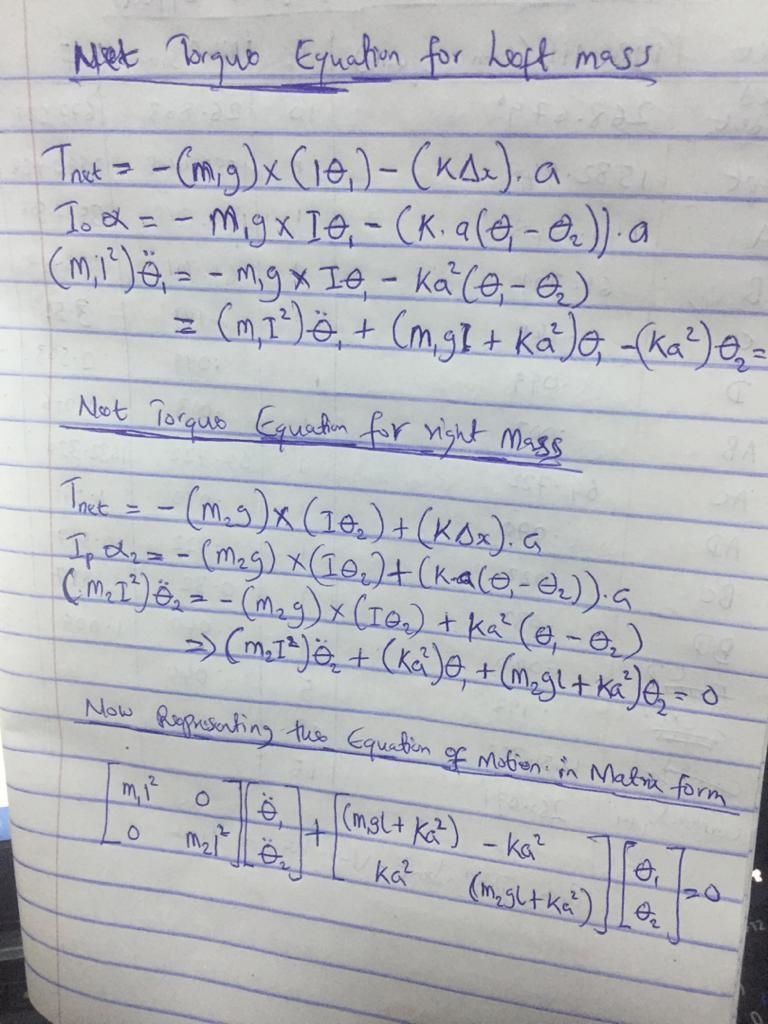 Net Torque Equation for Left mass
Tnet = -(m₁g)×(lθ₁) - (KΔx).a
I₀ α = - m₁g × lθ₁ - (K.a(θ₁ - θ₂)).a
(m₁l²)θ̈₁ = - m₁g × lθ₁ - Ka²(θ₁ - θ₂)
= (m₁l²)θ̈₁ + (m₁gl + Ka²)θ₁ -(Ka²)θ₂ =
Net Torque Equation for right Mass
Tnet = -(m₂g)×(lθ₂) + (KΔx).a
Iₚ α₂ = -(m₂g)×(lθ₂) + (K.a(θ₁ - θ₂)).a
(m₂l²)θ̈₂ = -(m₂g)×(lθ₂) + Ka²(θ₁ - θ₂)
⇒ (m₂l²)θ̈₂ + (Ka²)θ₁ + (m₂gl + Ka²)θ₂ = 0
Now Representing the Equation of Motion in Matrix form
[m₁l² 0] [θ̈₁] + [(m₁gl + Ka²) -Ka²] [θ₁] = 0
[0 m₂l²] [θ̈₂] [Ka² (m₂gl + Ka²)] [θ₂]